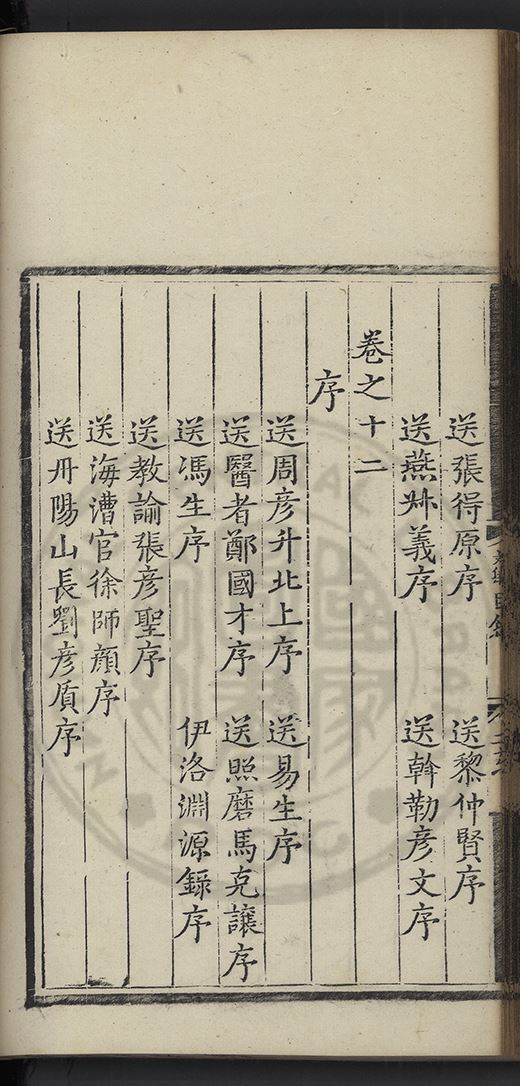 送張得原序　送黎仲賢序
送燕叔義序　送斡勒彥文序
卷之十二
序
送周彦升北上序　送易生序
送醫者鄭國才序　送照磨馬克讓序
送馮生序　伊洛淵源錄序
送教諭張彦聖序
送海漕官徐師顔序
送丹陽山長劉彦質序